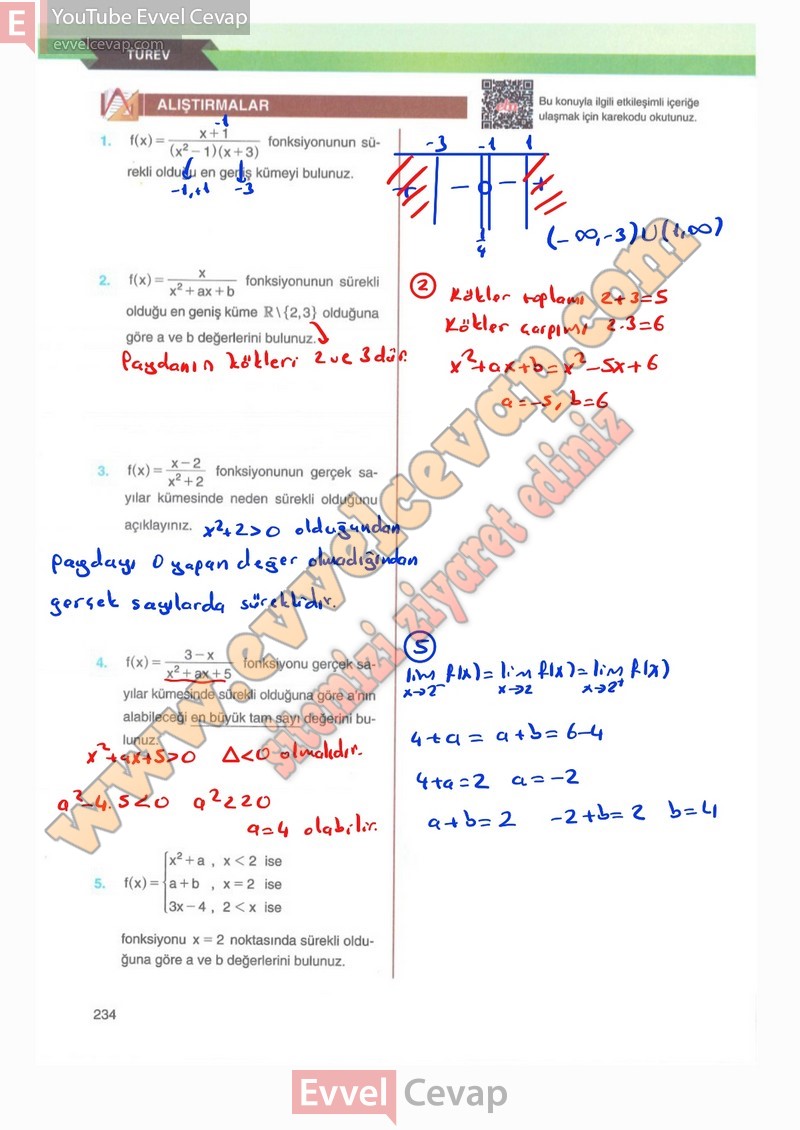 E YouTube Evvel Cevap
evvelcevap.com
TÜREV
ALIŞTIRMALAR
Bu konuyla ilgili etkileşimli içeriğe
ulaşmak için karekodu okutunuz.
1. f(x) = (x + 1) / ((x² − 1)(x + 3)) fonksiyonunun sü-
-1
rekli olduğu en geniş kümeyi bulunuz.
-1,+1 -3
-3 -1 1
+ − − +
(-∞,-3)∪(1,∞)
2. f(x) = x / (x² + ax + b) fonksiyonunun sürekli
olduğu en geniş küme ℝ\{2,3} olduğuna
göre a ve b değerlerini bulunuz.
Paydanın kökleri 2 ve 3 dür.
2 Kökler toplamı 2+3=5
Kökler çarpımı 2.3=6
x²+ax+b=x²-5x+6
a=-5, b=6
3. f(x) = (x − 2) / (x² + 2) fonksiyonunun gerçek sa-
yılar kümesinde neden sürekli olduğunu
açıklayınız. x²+2>0 olduğundan
paydayı 0 yapan değer olmadığından
gerçek sayılarda süreklidir.
4. f(x) = (3 − x) / (x² + ax + 5) fonksiyonu gerçek sa-
yılar kümesinde sürekli olduğuna göre a'nın
alabileceği en büyük tam sayı değerini bu-
lunuz.
x²+ax+5>0 Δ<0 olmalıdır.
a²-4.5<0 a²<20
a=4 olabilir.
5. f(x) = { x² + a , x < 2 ise
a + b , x = 2 ise
3x − 4 , 2 < x ise
fonksiyonu x = 2 noktasında sürekli oldu-
ğuna göre a ve b değerlerini bulunuz.
5
lim x→2⁻ f(x) = lim x→2 f(x) = lim x→2⁺ f(x)
4+a = a+b = 6-4
4+a=2 a=-2
a+b=2 -2+b=2 b=4
www.evvelcevap.com
sitemizi ziyaret ediniz
234
Evvel Cevap